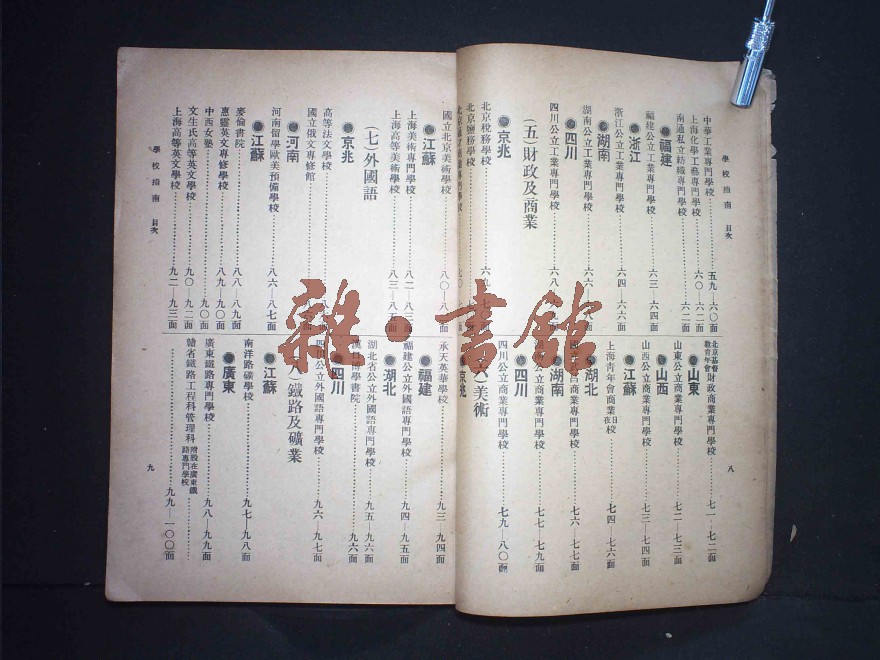 學校指南 目次
中華工業專門學校……五九—六〇面
上海化學工藝專門學校……六〇—六二面
南通私立紡織專門學校……六二面
福建
福建公立工業專門學校……六三—六四面
浙江
浙江公立工業專門學校……六四—六六面
湖南
湖南公立工業專門學校……六六—六八面
四川
四川公立工業專門學校……六八—六九面
(五)財政及商業
京兆
北京稅務學校
北京鹽務學校
北京基督教青年會財政商業專門學校……七一—七二面
山東
山東公立商業專門學校……七二—七三面
山西
山西公立商業專門學校……七三—七四面
江蘇
上海青年會商業日夜校……七四—七六面
湖北
商業專門學校……七六—七七面
湖南
湖南公立商業專門學校……七七—七九面
四川
四川公立商業專門學校……七九—八〇面
(六)美術
京兆
八
國立北京美術學校……八〇—八
江蘇
上海美術專門學校……八二—八三面
上海高等美術學校……八三—八五面
(七)外國語
京兆
高等法文學校
國立俄文專修館
河南
河南留學歐美預備學校……八六—八七面
江蘇
麥倫書院……八八—八九面
惠靈英文專修學校……八九—九〇面
中西女塾……九〇面
文生氏高等英文學校……九〇—九二面
上海高等英文學校……九二—九三面
學校指南 目次
承天英華學校……九三—九四面
福建
福建公立外國語專門學校……九四—九五面
湖北
湖北省公立外國語專門學校……九五—九六面
漢口博學書院……九六面
四川
四川公立外國語專門學校……九六—九七面
(八)鐵路及礦業
江蘇
南洋路礦學校……九七—九八面
廣東
廣東鐵路專門學校……九八—九九面
贛省鐵路工程科管理科附設在廣東鐵路專門學校
……九九—一〇〇面
九
雜·書館